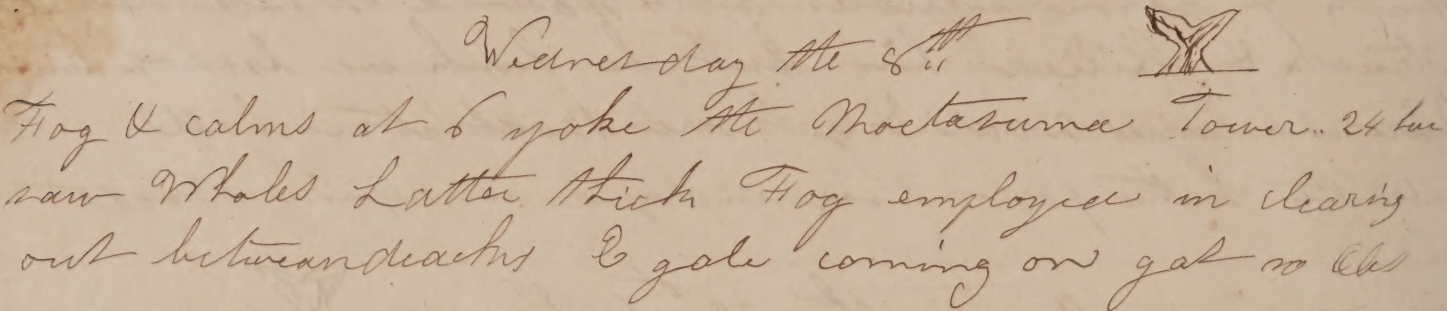 Wednesday the 8th
Fog & calms at 6 spoke the Moctazuma Tower.. 24 hun
saw Whales Latter thick Fog employed in clearing
out betweandeacks & gale coming on got no Obs